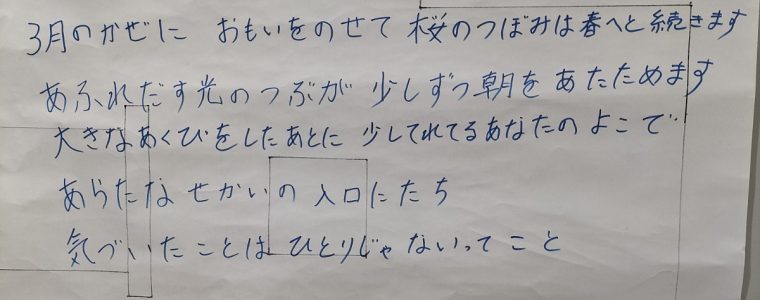 3月のかぜに おもいをのせて 桜のつぼみは春へと続きます
あふれだす光のつぶが 少しずつ朝をあたためます
大きなあくびをしたあとに 少してれてるあなたのよこで
あらたなせかいの入口にたち
気づいたことは ひとりじゃないってこと